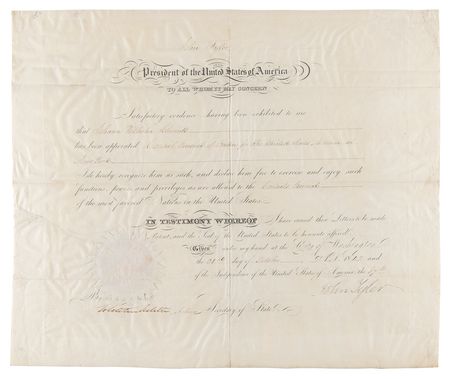 John Tyler
President of the United States of America
TO ALL WHOM IT MAY CONCERN
Satisfactory evidence having been exhibited to me
that Johann Wilhelm Schmidt
has been appointed Consul General of for the United States
New York
I do hereby recognize him as such, and declare him free to exercise and enjoy such
functions, powers and privileges as are allowed to the Consuls General
of the most favored Nations in the United States.
IN TESTIMONY WHEREOF I have caused these Letters to be made
Patent, and the Seal of the United States to be hereunto affixed.
Given under my hand at the City of Washington
the day of October A.D. 184 and
of the Independence of the United States of America, the
John Tyler
By
Secretary of State